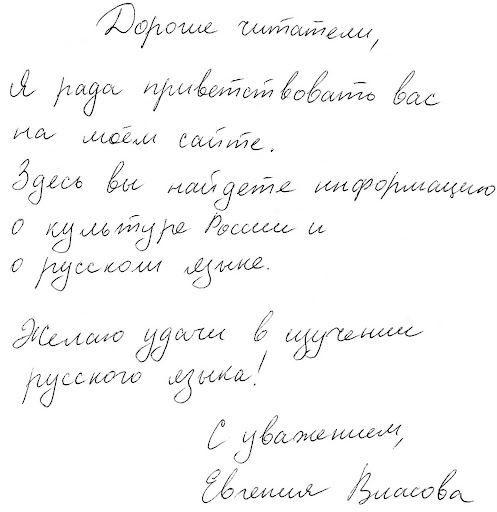 Дорогие читатели,
Я рада приветствовать вас
на моём сайте.
Здесь вы найдете информацию
о культуре России и
о русском языке.
Желаю удачи в изучении
русского языка!
С уважением,
Евгения Власова